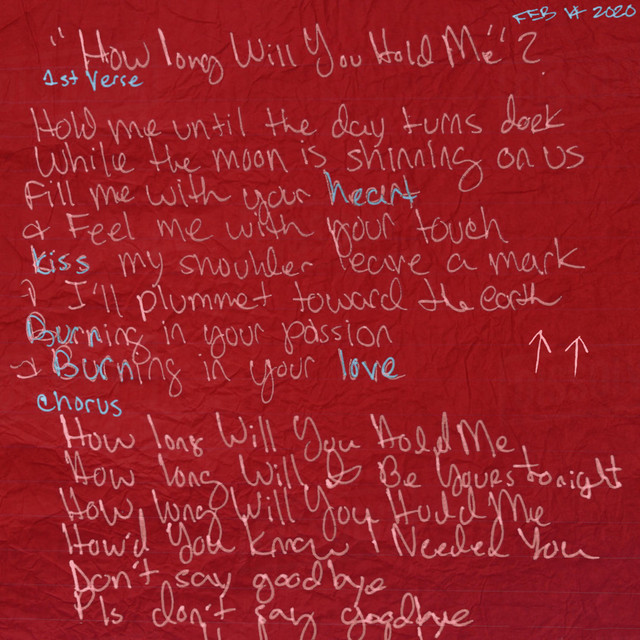 FEB 14 2020
"How long Will You Hold Me"?
1st Verse
Hold me until the day turns dark
While the moon is shinning on us
Fill me with your heart
& Feel me with your touch
kiss my shoulder leave a mark
I'll plummet toward the earth
Burning in your passion
Burning in your love
chorus
How long Will You Hold Me
How long Will I Be Yours tonight
How long Will You Hold Me
How'd You Know I Needed You
Don't say goodbye
Pls don't say goodbye